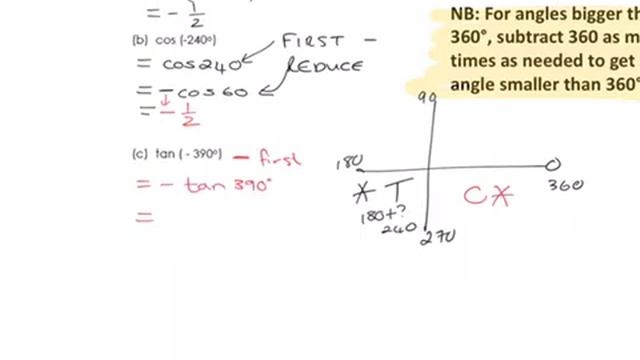 = - 1/2
(b) cos (-240°)
= cos 240°
= - cos 60
= - 1/2
FIRST -
REDUCE
NB: For angles bigger th
360°, subtract 360 as m
times as needed to get
angle smaller than 360°
(c) tan (- 390°) - first
= - tan 390°
=
90
180
360
* T
C *
180+?
240
270